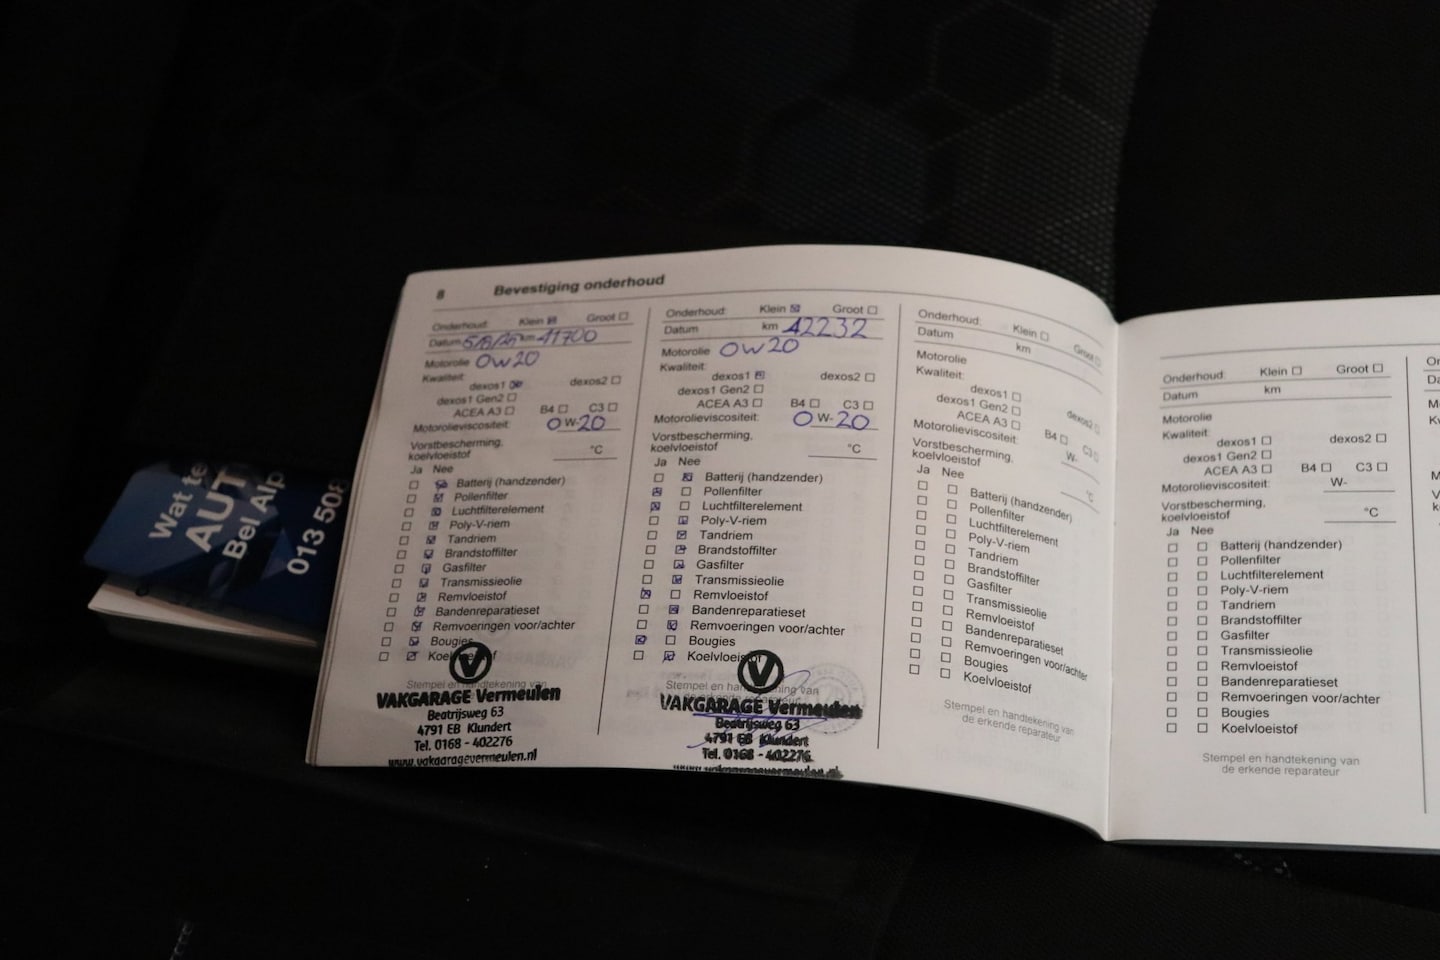 8 Bevestiging onderhoud
Onderhoud: Klein ☒ Groot ☐
Datum 5/8/25 km 41700
Motorolie OW20
Kwaliteit:
dexos1 ☒ dexos2 ☐
dexos1 Gen2 ☐
ACEA A3 ☐ B4 ☐ C3 ☐
Motorolieviscositeit: 0 W-20
Vorstbescherming,
koelvloeistof °C
Ja Nee
☐ ☒ Batterij (handzender)
☐ ☒ Pollenfilter
☐ ☒ Luchtfilterelement
☐ ☒ Poly-V-riem
☐ ☒ Tandriem
☐ ☒ Brandstoffilter
☐ ☒ Gasfilter
☐ ☒ Transmissieolie
☐ ☒ Remvloeistof
☐ ☒ Bandenreparatieset
☐ ☒ Remvoeringen voor/achter
☐ ☒ Bougies
☐ ☒ Koelvloeistof
Stempel en handtekening van
VAKGARAGE Vermeulen
Beatrijsweg 63
4791 EB Klundert
Tel. 0168 - 402276
www.vakgaragevermeulen.nl
Onderhoud: Klein ☒ Groot ☐
Datum km 42232
Motorolie OW20
Kwaliteit:
dexos1 ☒ dexos2 ☐
dexos1 Gen2 ☐
ACEA A3 ☐ B4 ☐ C3 ☐
Motorolieviscositeit: 0 W-20
Vorstbescherming,
koelvloeistof °C
Ja Nee
☐ ☒ Batterij (handzender)
☒ ☐ Pollenfilter
☒ ☐ Luchtfilterelement
☐ ☒ Poly-V-riem
☐ ☒ Tandriem
☐ ☒ Brandstoffilter
☐ ☒ Gasfilter
☐ ☒ Transmissieolie
☒ ☐ Remvloeistof
☐ ☒ Bandenreparatieset
☐ ☒ Remvoeringen voor/achter
☒ ☐ Bougies
☐ ☒ Koelvloeistof
Stempel en handtekening van
VAKGARAGE Vermeulen
Beatrijsweg 63
4791 EB Klundert
Tel. 0168 - 402276
www.vakgaragevermeulen.nl
Onderhoud: Klein ☐ Groot ☐
Datum km
Motorolie
Kwaliteit:
dexos1 ☐ dexos2 ☐
dexos1 Gen2 ☐
ACEA A3 ☐ B4 ☐ C3 ☐
Motorolieviscositeit: W-
Vorstbescherming,
koelvloeistof °C
Ja Nee
☐ ☐ Batterij (handzender)
☐ ☐ Pollenfilter
☐ ☐ Luchtfilterelement
☐ ☐ Poly-V-riem
☐ ☐ Tandriem
☐ ☐ Brandstoffilter
☐ ☐ Gasfilter
☐ ☐ Transmissieolie
☐ ☐ Remvloeistof
☐ ☐ Bandenreparatieset
☐ ☐ Remvoeringen voor/achter
☐ ☐ Bougies
☐ ☐ Koelvloeistof
Stempel en handtekening van
de erkende reparateur
Onderhoud: Klein ☐ Groot ☐
Datum km
Motorolie
Kwaliteit:
dexos1 ☐ dexos2 ☐
dexos1 Gen2 ☐
ACEA A3 ☐ B4 ☐ C3 ☐
Motorolieviscositeit: W-
Vorstbescherming,
koelvloeistof °C
Ja Nee
☐ ☐ Batterij (handzender)
☐ ☐ Pollenfilter
☐ ☐ Luchtfilterelement
☐ ☐ Poly-V-riem
☐ ☐ Tandriem
☐ ☐ Brandstoffilter
☐ ☐ Gasfilter
☐ ☐ Transmissieolie
☐ ☐ Remvloeistof
☐ ☐ Bandenreparatieset
☐ ☐ Remvoeringen voor/achter
☐ ☐ Bougies
☐ ☐ Koelvloeistof
Stempel en handtekening van
de erkende reparateur
Wat te
AUT
Bel Alp
013 508